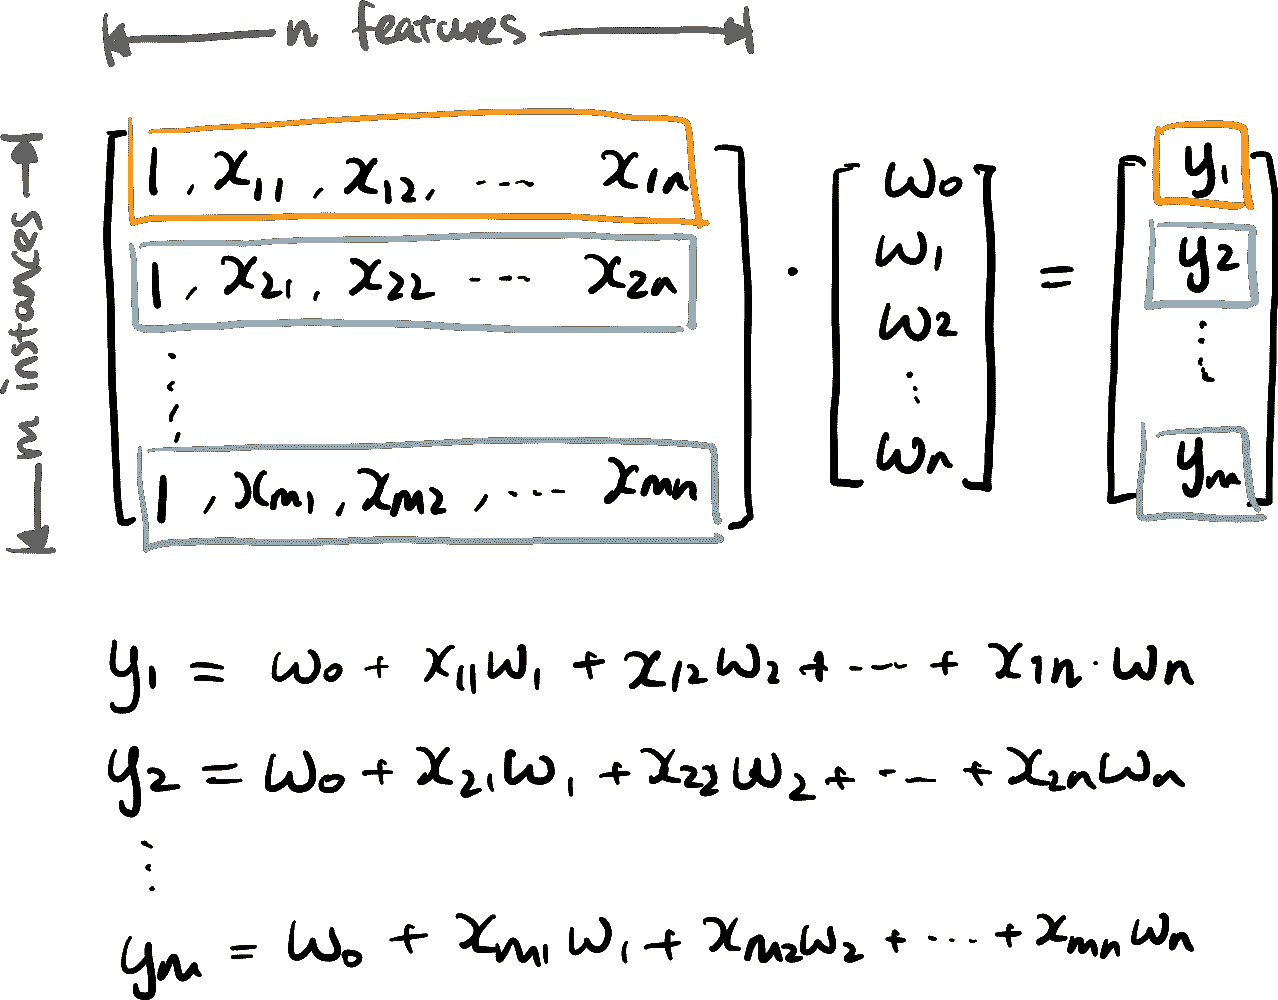 n features
m instances
1, x₁₁, x₁₂, ---- x₁ₙ
1, x₂₁, x₂₂ --- x₂ₙ
⋮
1, xₘ₁, xₘ₂, ---- xₘₙ
·
w₀
w₁
w₂
⋮
wₙ
=
y₁
y₂
⋮
yₘ
y₁ = w₀ + x₁₁w₁ + x₁₂w₂ + ---- + x₁ₙ · wₙ
y₂ = w₀ + x₂₁w₁ + x₂₂w₂ + --- + x₂ₙwₙ
⋮
yₘ = w₀ + xₘ₁w₁ + xₘ₂w₂ + ---- + xₘₙwₙ